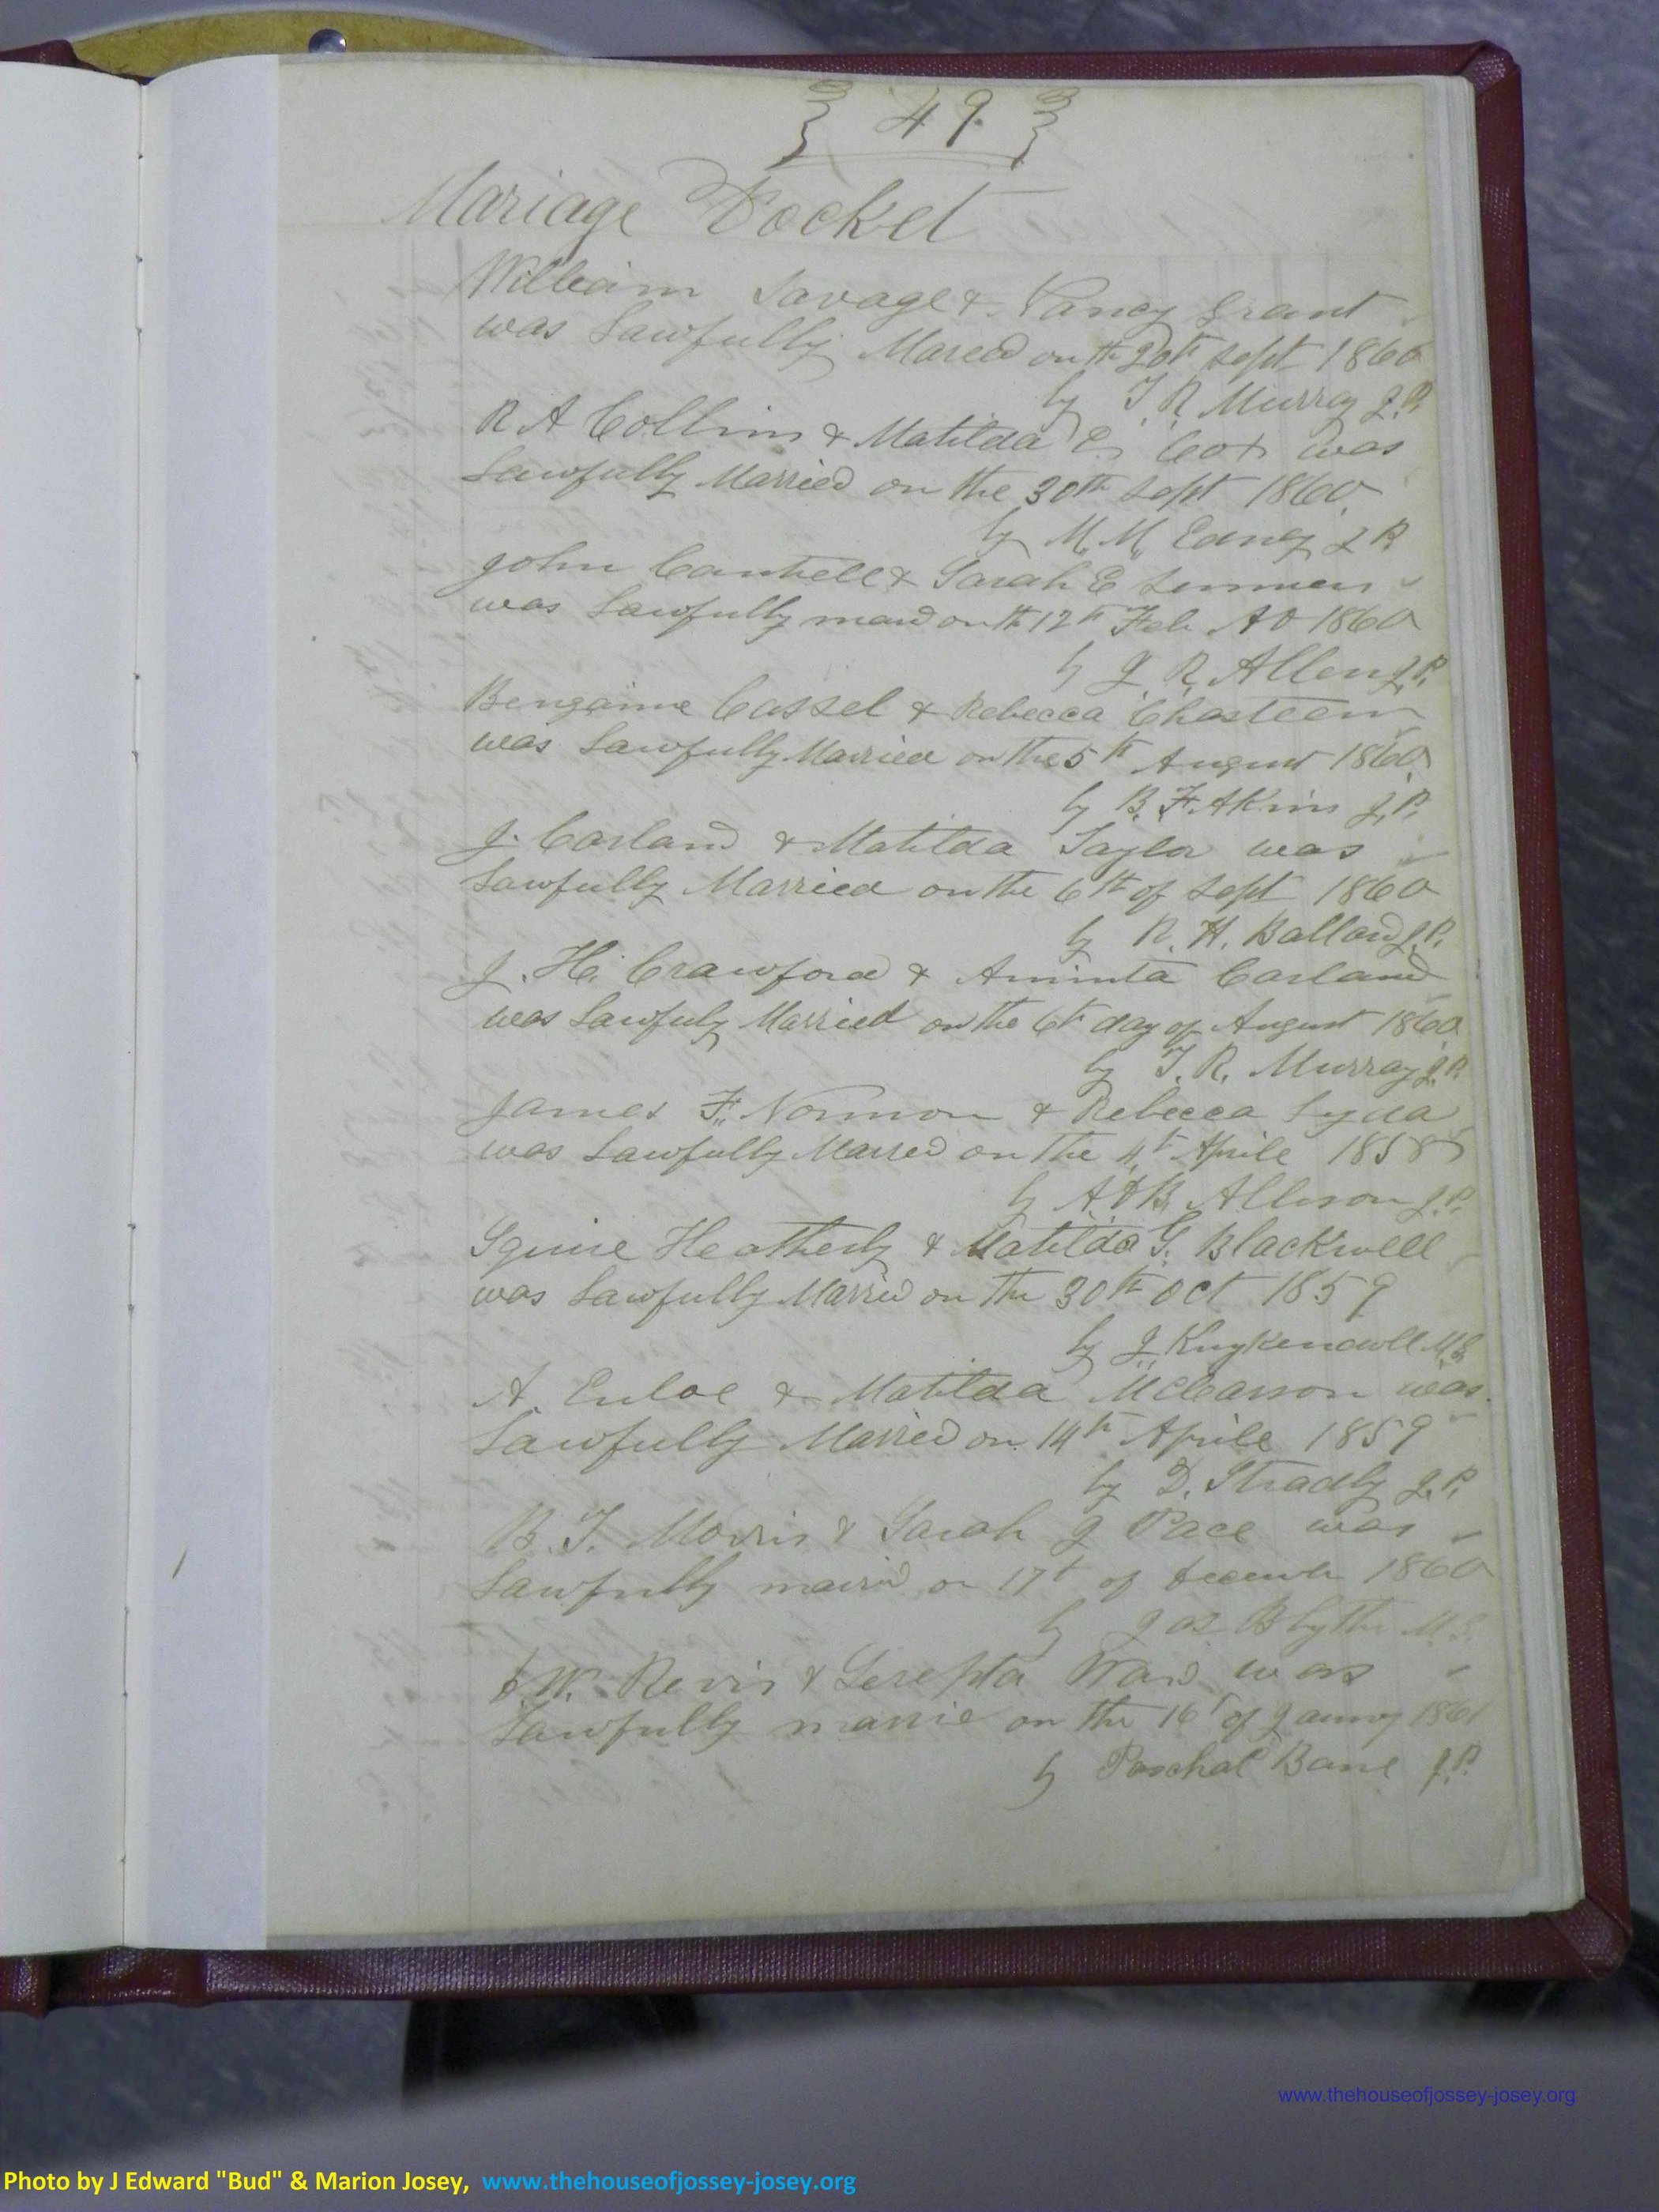 49.
Mariage Docket
William Savage & Nancy Grant
was Lawfully Maried on th 20th Sept 1860
by T. R. Murray J.P.
R A Collins & Matilda E. Cox was
Lawfully Married on the 30th Sept 1860.
by M. M. Edney J P.
John Cantrell & Sarah E
was Lawfully mard on th 12th Feb AD 1860
by J. R. Allen J.P.
Bengamine Cassel & Rebecca Chasteen
was Lawfully Married on the 5th August 1860
by B. F. Akins J.P.
J. Carland & Matilda Taylor was
Lawfully Married on the 6th of Sept 1860
by R. H. Ballard J.P.
J. H. Crawford & Aminta Carland
was Lawfuly Married on the 6th day of August 1860
by T. R. Murray J.P.
James F. Normon & Rebecca Lyda
was Lawfully Marred on the 4th Aprile 1858
by A. Allison J.P.
Squire Heatherly & Matilda G. Blackwell
was Lawfully Married on the 30th Oct 1859
by J. Kuykendoll M.G.
A. Enloe & Matilda McCarson was
Lawfully Married on 14th Aprile 1859
by D. Stradly J.P.
B. T. Morris & Sarah J Pace was
Lawfully maried on 17t of 1860
by Jas Blythe M.G.
W. Revis & Serepta Ward was
Lawfully marrie on the 16t of 1861
by Paschal Bane J.P.
www.thehouseofjossey-josey.org
Photo by J Edward "Bud" & Marion Josey, www.thehouseofjossey-josey.org